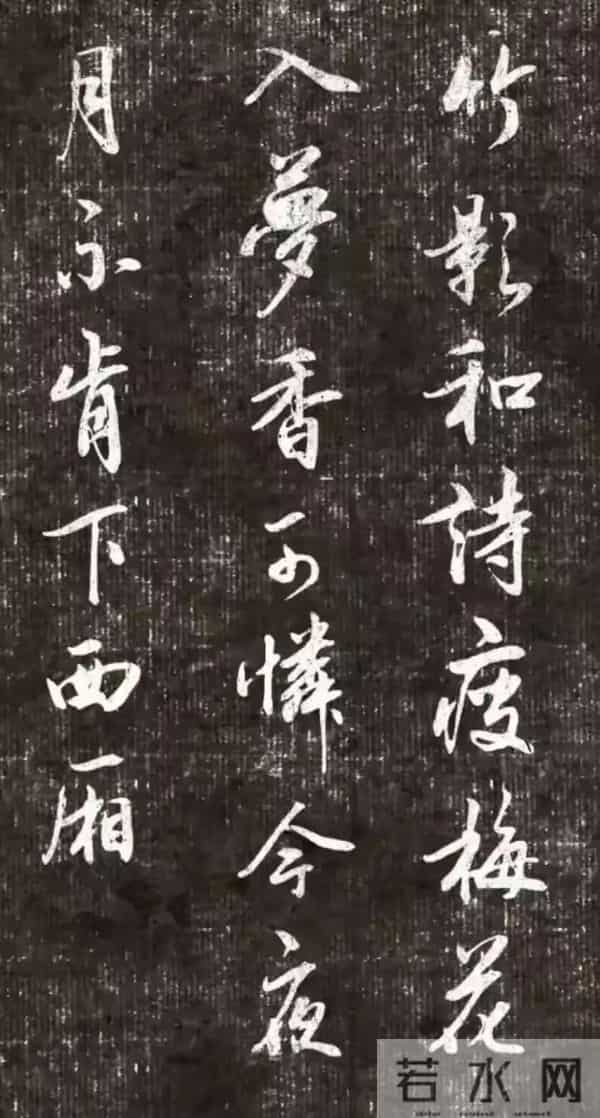 竹影和詩瘦梅花
入夢香可憐今夜
月不肯下西廂
若水网